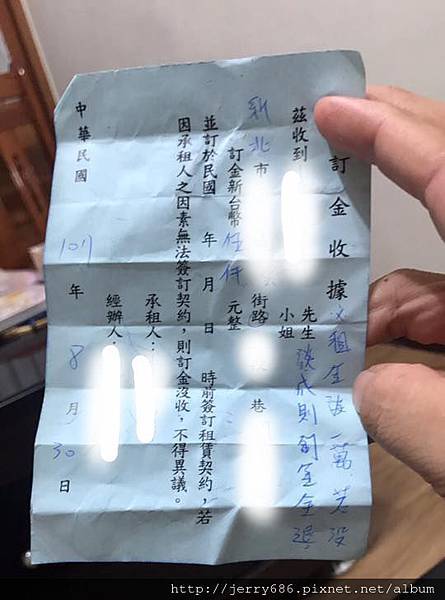 訂金收據
租金談一萬,若沒
談成則訂金全退
茲收到 先生
小姐
新北市 街路 巷
訂金新台幣伍仟元整
並訂於民國 年 月 日 時前簽訂租賃契約,若
因承租人之因素無法簽訂契約,則訂金沒收,不得異議。
承租人:
經辦人:
中華民國 107年8月30日
http://jerry686.pixnet.net/album